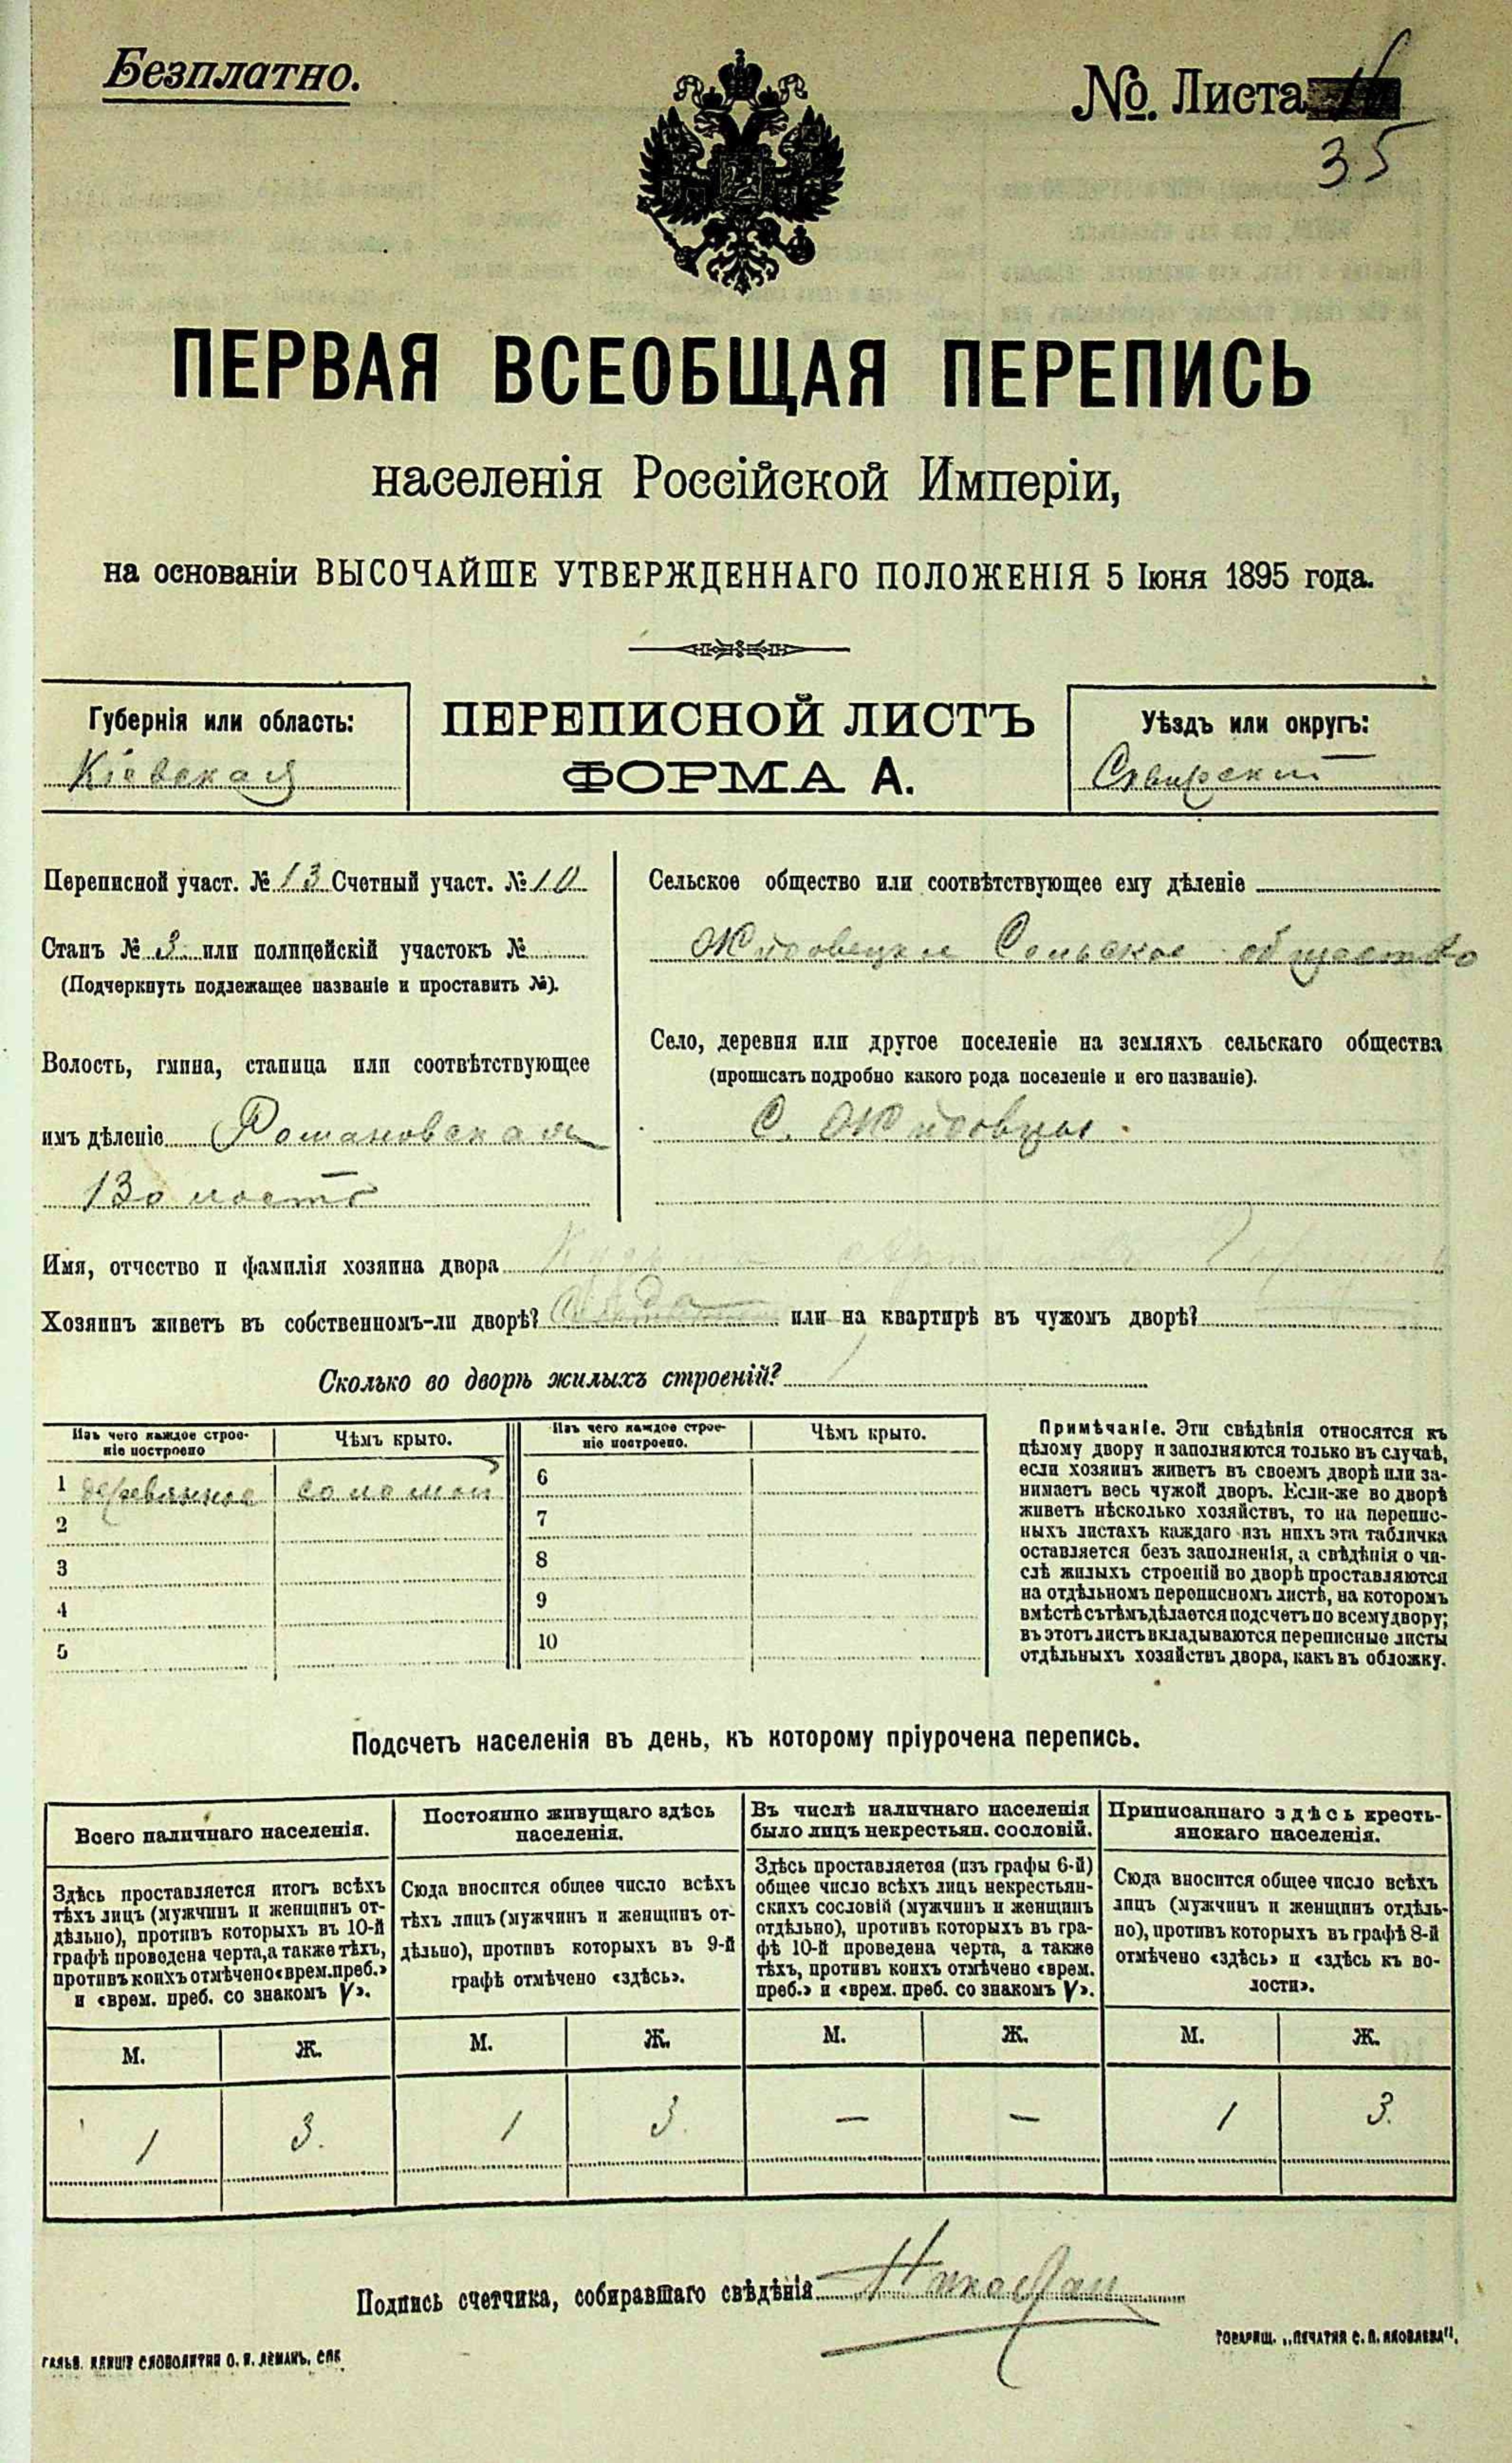 Безплатно.
№. Листа
35
ПЕРВАЯ ВСЕОБЩАЯ ПЕРЕПИСЬ
населенія Россійской Имперіи,
на основаніи ВЫСОЧАЙШЕ УТВЕРЖДЕННАГО ПОЛОЖЕНІЯ 5 Іюня 1895 года.
Губернія или область:
Кіевская
ПЕРЕПИСНОЙ ЛИСТЪ
ФОРМА А.
Уѣздъ или округъ:
Сквирскій
Переписной участ. № 13 Счетный участ. № 10
Станъ № 3 или полицейскій участокъ №
(Подчеркнуть подлежащее названіе и проставить №).
Волость, гмина, станица или соотвѣтствующее
имъ дѣленіе Романовская
Волость
Сельское общество или соотвѣтствующее ему дѣленіе
Сельское общество
Село, деревня или другое поселеніе на земляхъ сельскаго общества
(прописать подробно какого рода поселеніе и его названіе).
С. Жидовцы.
Имя, отчество и фамилія хозяина двора
Хозяинъ живетъ въ собственномъ-ли дворѣ? да или на квартирѣ въ чужомъ дворѣ?
Сколько во дворѣ жилыхъ строеній? 1
Изъ чего каждое строе-
ніе построено
Чѣмъ крыто.
Изъ чего каждое строе-
ніе построено.
Чѣмъ крыто.
1 деревянное соломой
2
3
4
5
6
7
8
9
10
Примѣчаніе. Эти свѣдѣнія относятся къ
цѣлому двору и заполняются только въ случаѣ,
если хозяинъ живетъ въ своемъ дворѣ или за-
нимаетъ весь чужой дворъ. Если-же во дворѣ
живетъ нѣсколько хозяйствъ, то на перепис-
ныхъ листахъ каждаго изъ нихъ эта табличка
оставляется безъ заполненія, а свѣдѣнія о чи-
слѣ жилыхъ строеній во дворѣ проставляются
на отдѣльномъ переписномъ листѣ, на которомъ
вмѣстѣ съ тѣмъ дѣлается подсчетъ по всему двору;
въ этотъ листъ вкладываются переписные листы
отдѣльныхъ хозяйствъ двора, какъ въ обложку.
Подсчетъ населенія въ день, къ которому пріурочена перепись.
Всего наличнаго населенія.
Здѣсь проставляется итогъ всѣхъ
тѣхъ лицъ (мужчинъ и женщинъ от-
дѣльно), противъ которыхъ въ 10-й
графѣ проведена черта, а также тѣхъ,
противъ коихъ отмѣчено «врем. преб.»
и «врем. преб. со знакомъ V».
Постоянно живущаго здѣсь
населенія.
Сюда вносится общее число всѣхъ
тѣхъ лицъ (мужчинъ и женщинъ от-
дѣльно), противъ которыхъ въ 9-й
графѣ отмѣчено «здѣсь».
Въ числѣ наличнаго населенія
было лицъ некрестьян. сословій.
Здѣсь проставляется (изъ графы 6-й)
общее число всѣхъ лицъ некрестьян-
скихъ сословій (мужчинъ и женщинъ
отдѣльно), противъ которыхъ въ гра-
фѣ 10-й проведена черта, а также
тѣхъ, противъ коихъ отмѣчено «врем.
преб.» и «врем. преб. со знакомъ V».
Приписаннаго здѣсь кресть-
янскаго населенія.
Сюда вносится общее число всѣхъ
лицъ (мужчинъ и женщинъ отдѣль-
но), противъ которыхъ въ графѣ 8-й
отмѣчено «здѣсь» и «здѣсь къ во-
лости».
М. Ж. М. Ж. М. Ж. М. Ж.
1 3. 1 3 — — 1 3.
Подпись счетчика, собиравшаго свѣдѣнія
ГАЛЬВ. КЛИШЕ СЛОВОЛИТНИ О. И. ЛЕМАНЪ, СПБ.
ТОВАРИЩ. „ПЕЧАТНЯ С. П. ЯКОВЛЕВА".